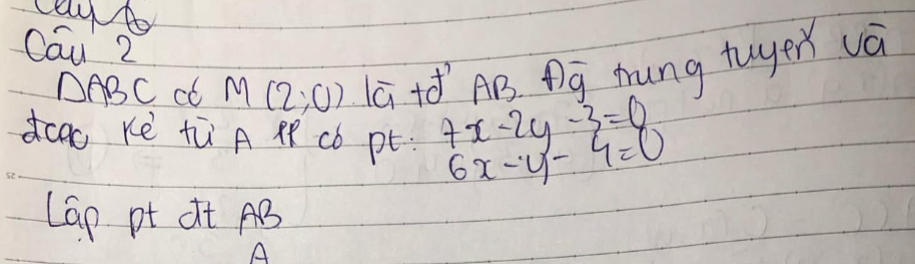 Câu 2
ΔABC có M(2;0) là tđ AB. Đg trung tuyến và
đcao kẻ từ A lll có pt: 7x-2y-3=0
6x-y-4=0
Lập pt đt AB
A